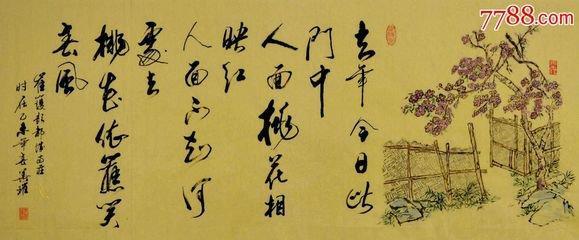 7788.com
去年今日此
門中
人面桃花相
映红
人面不知何
處去
桃花依舊笑
春風
崔護題都城南莊
时在乙未年